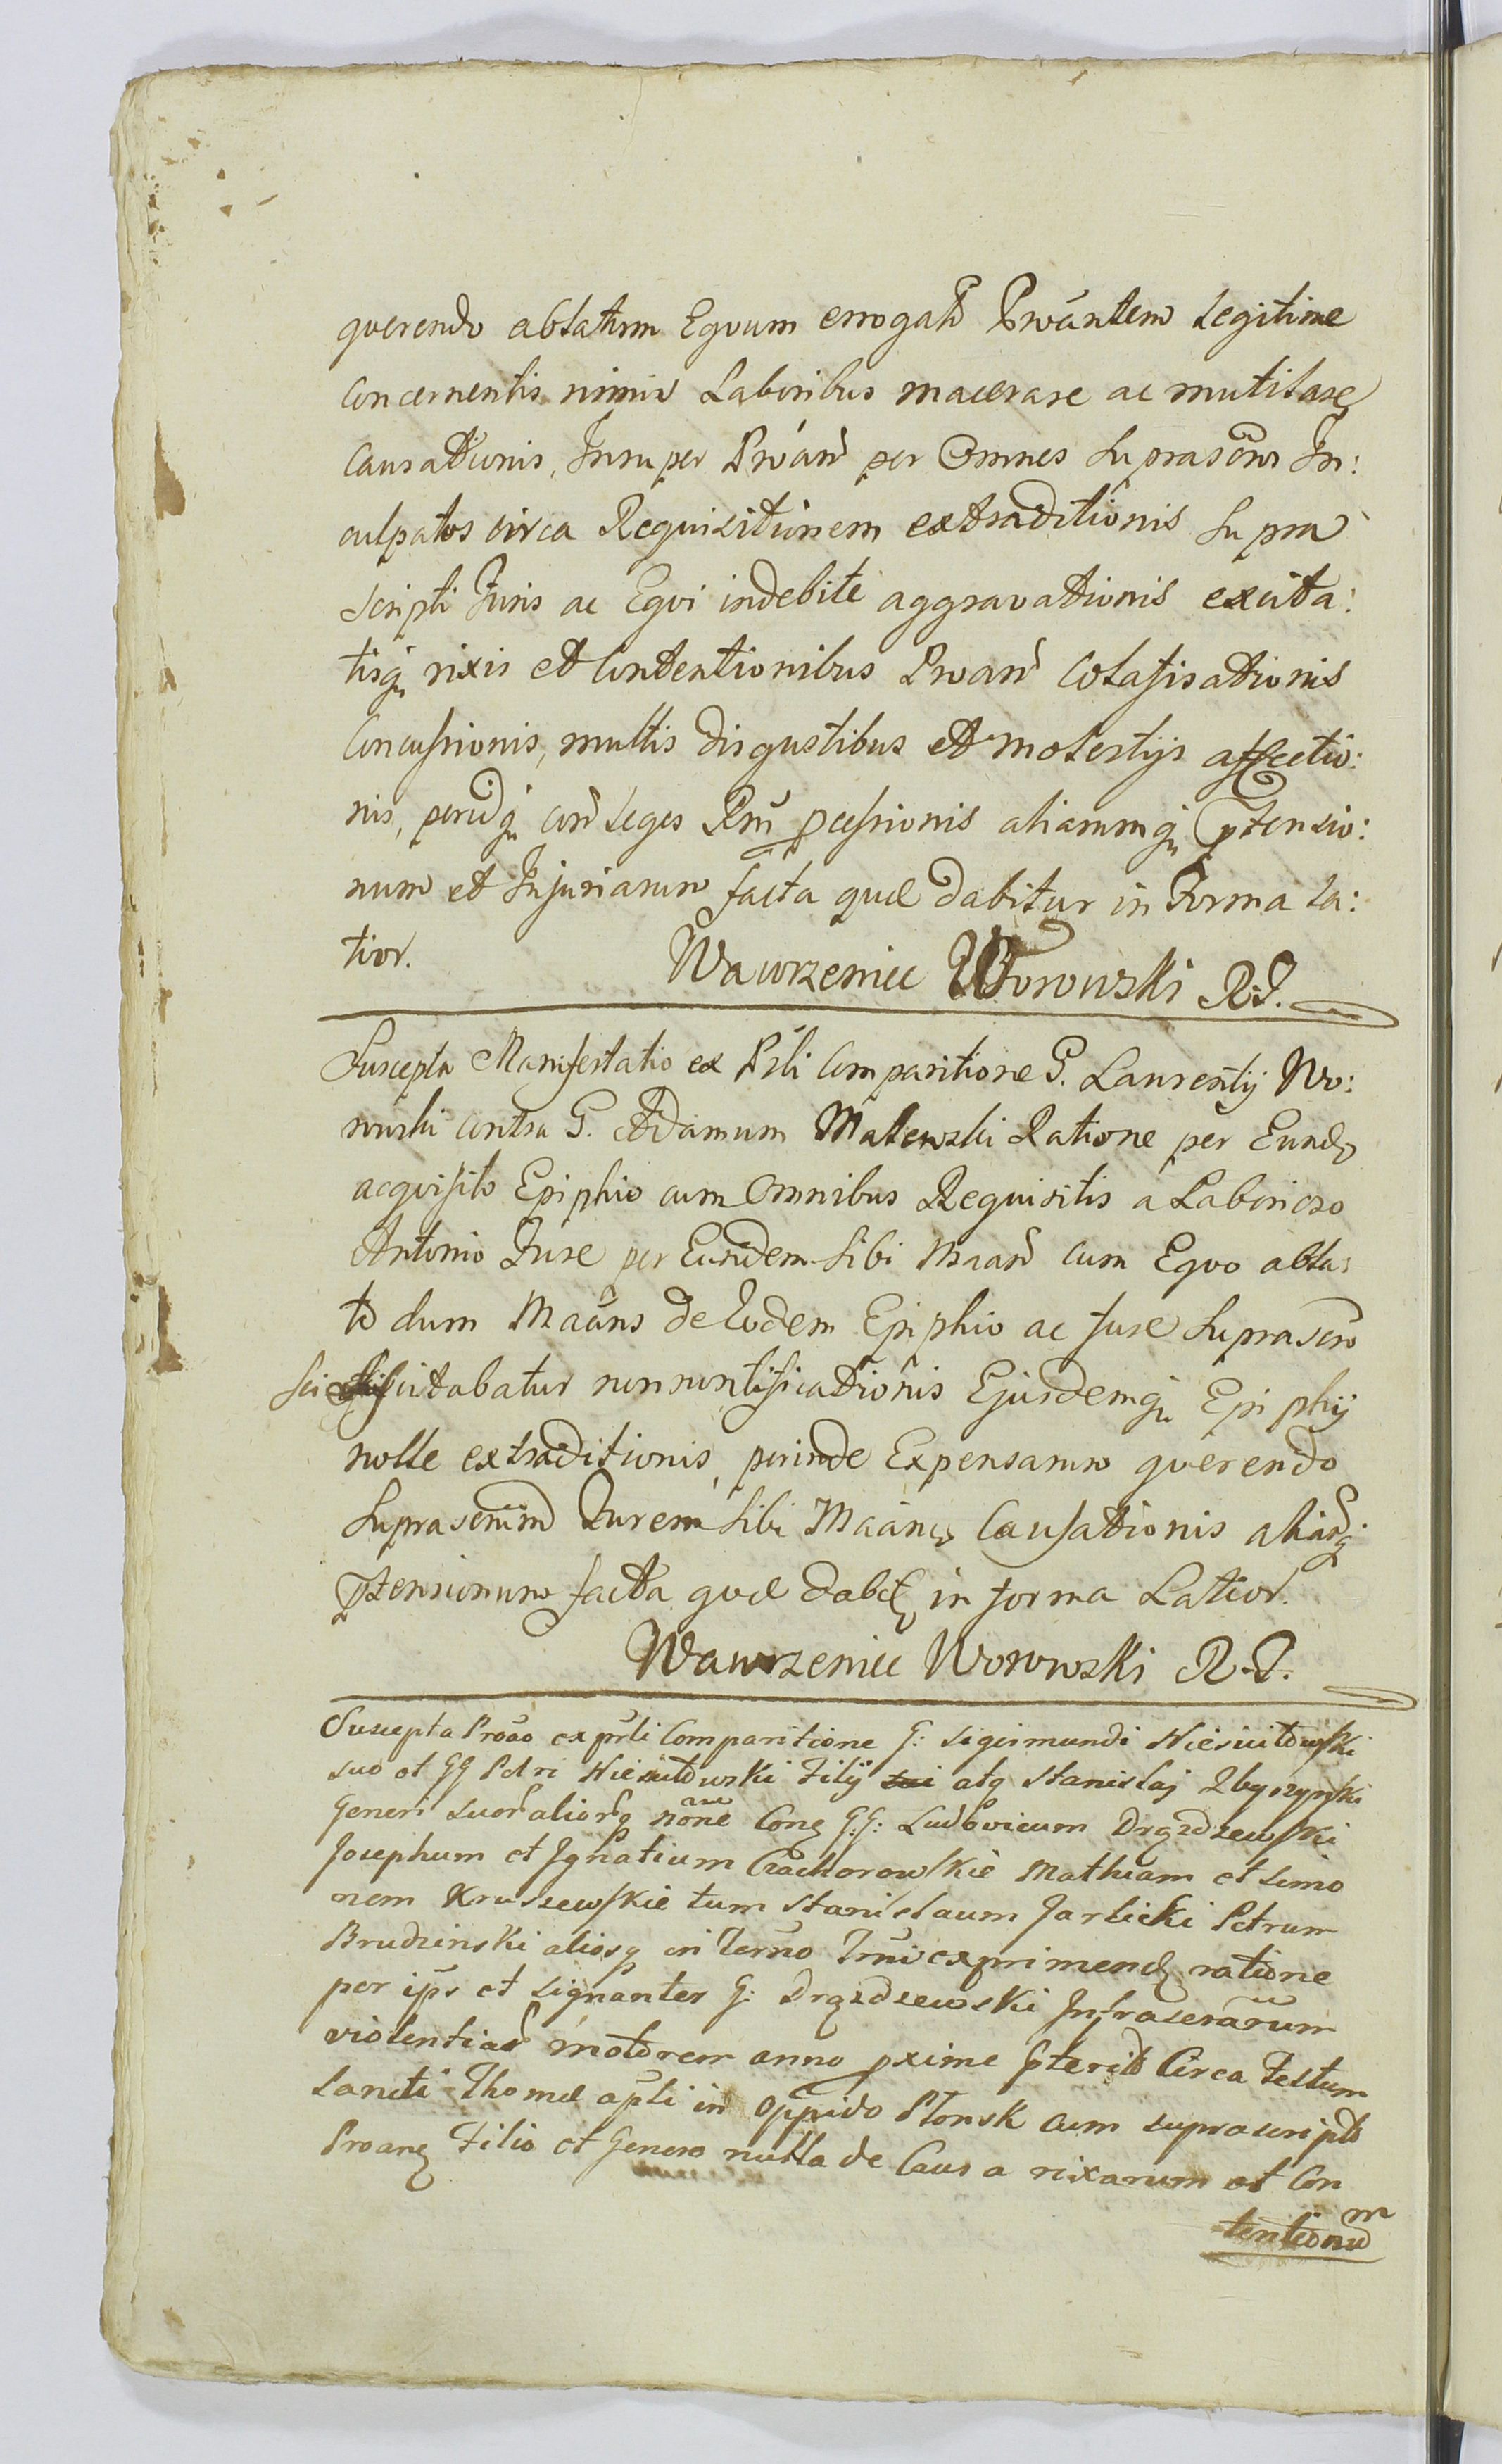 querendo ablatum Equum errogatῶ Proāntem legitime
concernentis nimis Laboribus macerare ac mutilare
Causationis, Insuper Proān per Omnes suprascrōs In:
culpatos circa Requisitionem extraditionis supra
scripti Juris ac Equi indebite aggravationis excita:
tisq rixis et Contentionibus Proan Colafisationis
Concussionis, multis disgustibus et molestijs affectio:
nis, perīdq con Leges Rni pcessionis aliarumq ptensio:
num et Injuriarum facta quæ dabitur in Forma la:
tior.
Wawrzeniec Worowski R.P.
Suscepta Manifestatio ex Psli Comparitione G. Laurentij Wo:
rowski contra G. Adamum Malewski Ratione per Eund
acquisito Epiphio cum Omnibus Requisitis a Laborioso
Antonio Jure per Eundem sibi Maan cum Equo abla:
to dum Maāns de Eodem Epiphio ac Jure suprascro
sciscitabatur non notificationis Ejusdemq Epiphij
nolle extraditionis, perinde Expensarum querendo
suprascrīum Jurem sibi Maān Causationis aliarq
ptensionum facta quæ dabt in forma Latior.
Wawrzeniec Worowski R.P.
Suscepta Proāo ex prsli Comparitione G: Sigismundi Niesiułowski
suo et GG Petri Niesiułowski Filij sui atq Stanislaj Zbyszynski
Generi suor aliorq nōne Con G:G: Ludovicum Drązdzewski
Josephum et Ignatium Ciachorowskie Mathiam et Simo
nem Kruszewskie tum Stanislaum Jarlicki Petrum
Brudzinski aliosq in Termo Tmi exprimend ratione
per ips et signanter G: Drązdzewski Infrascrarum
violentiar motorem anno pxime pterito Circa Festum
Sancti Thomæ apli in oppido Płonsk cum suprascripto
Proan Filio et Genero nulla de Causa rixarum et Con
tentionum